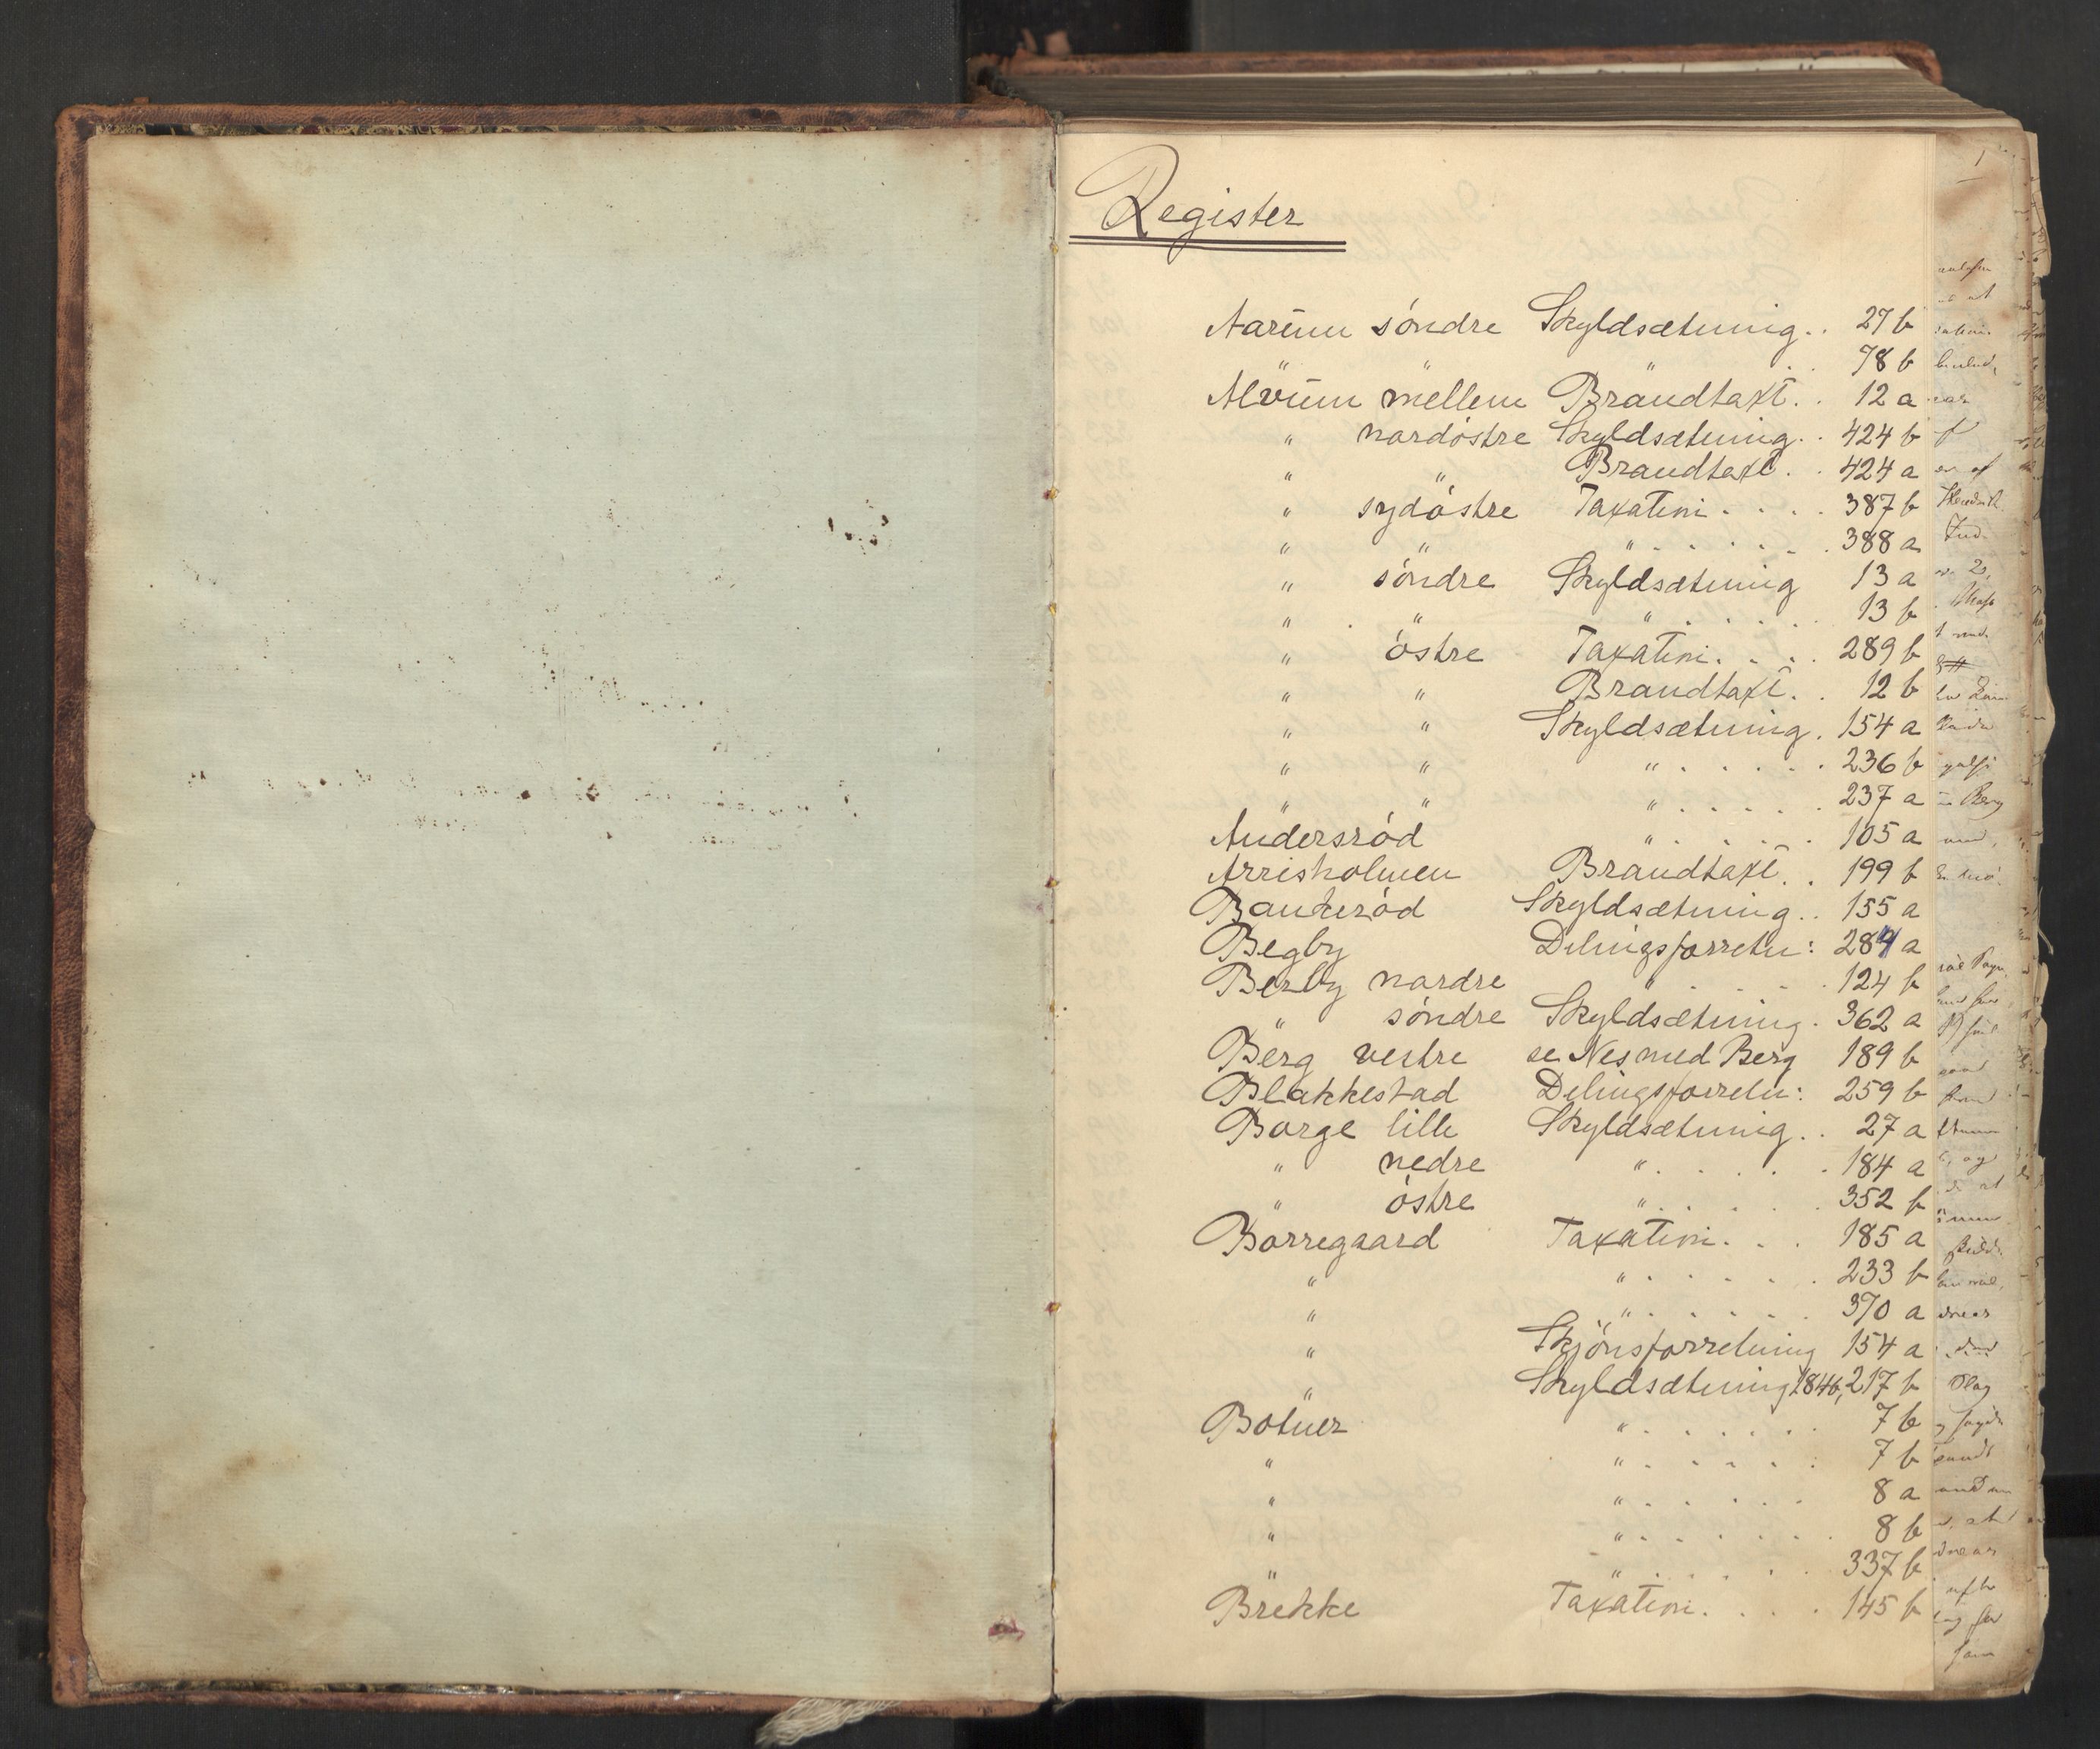 Register
Aarum söndre Skyldsætning . . 27 b
" " " . 78 b
Alvim mellem Brandtaxt . . 12 a
" nordöstre Skyldsætning . . 424 b
" " Brandtaxt . . 424 a
" sydöstre Taxation . . . . 387 b
" " " . . . . . . 388 a
" söndre Skyldsætning 13 a
" " " . . . . . 13 b
" östre Taxation . . . . 289 b
" " Brandtaxt . . 12 b
" " Skyldsætning . 154 a
" " " . . . . . 236 b
" " " . . . . . 237 a
Andersröd " . . . . . 105 a
Arrisholmen Brandtaxt . . 199 b
Bankeröd Skyldsætning . . 155 a
Begby Delingsforretn: 284 a
Berby nordre " . . . . . 124 b
" söndre Skyldsætning . 362 a
Berg vestre se Nes med Berg 189 b
Blakkestad Delingsforretn: 259 b
Borge lille Skyldsætning . . 27 a
" nedre " . . . . . 184 a
" östre " . . . . . 352 b
Borregaard Taxation . . . 185 a
" " . . . . . . 233 b
" " . . . . . . 370 a
" Skjönsforretning 154 a
" Skyldsætning 1846, 217 b
Botner " . . . . . . 7 b
" " . . . . . . 7 b
" " . . . . . . 8 a
" " . . . . . . 8 b
" " . . . . . . 337 b
Brekke Taxation . . . . 145 b
1